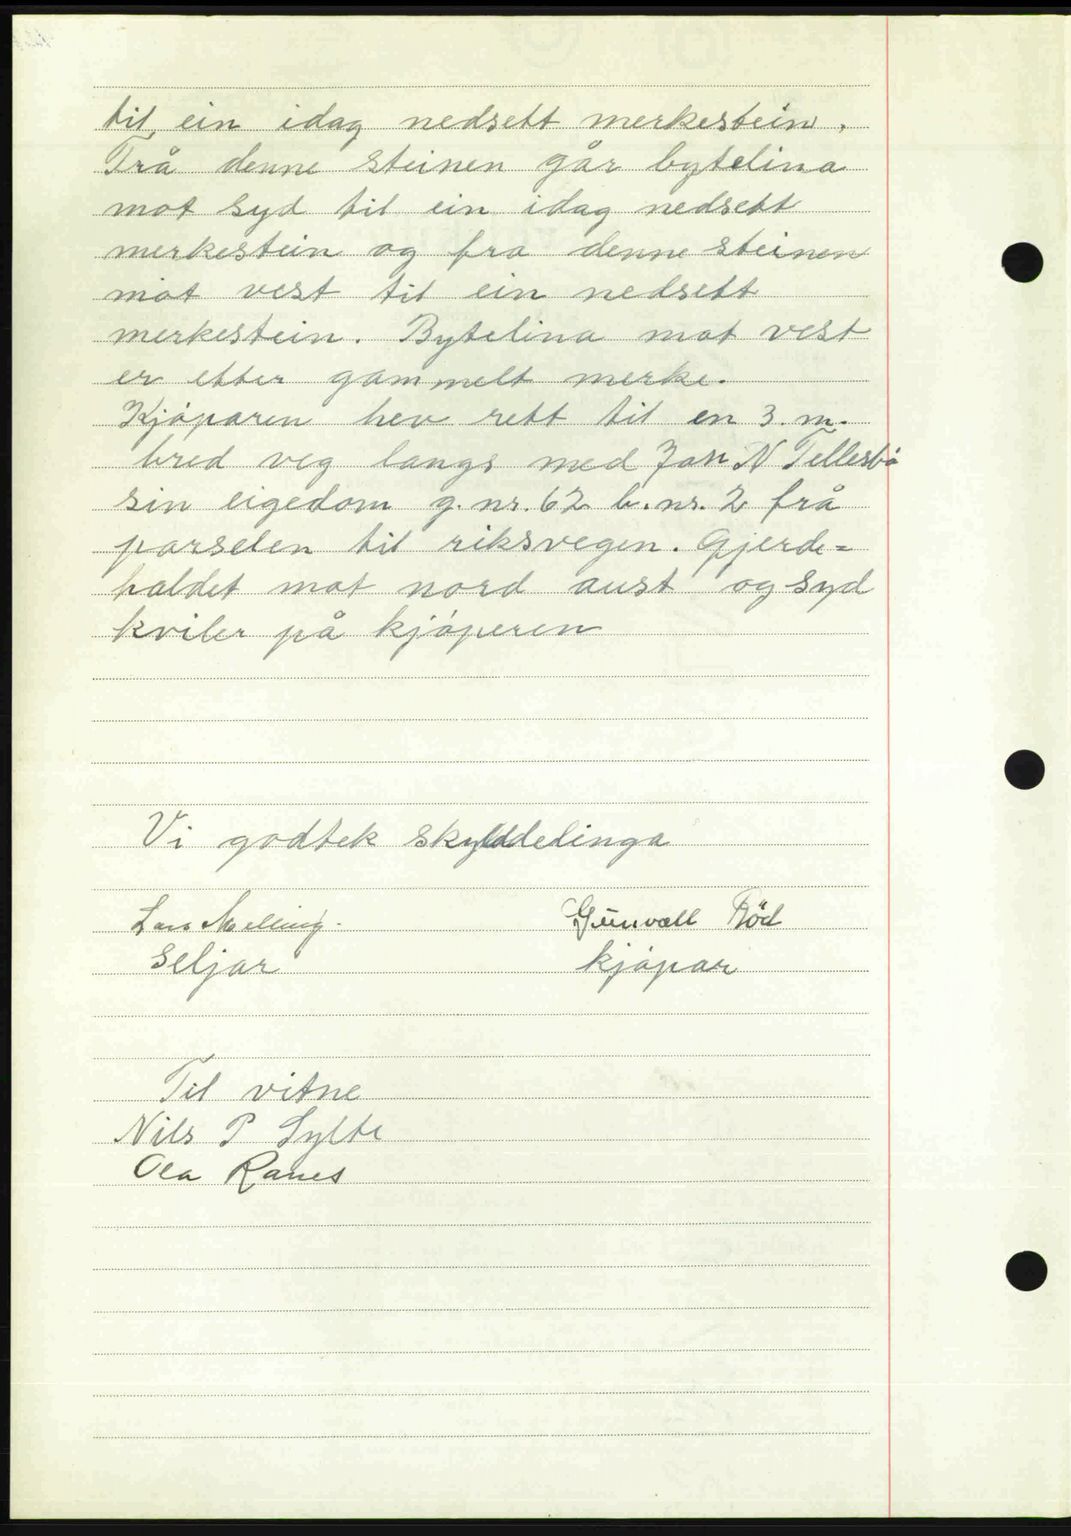 til ein idag nedsett merkestein.
Frå denne steinen går bytelina
mot syd til ein idag nedsett
merkestein og fra denne steinen
mot vest til ein nedsett
merkestein. Bytelina mot vest
er etter gammelt merke.
Kjöparen hev rett til en 3. m.
bred veg langs med Jon N Tellesbö
sin eigedom g.nr. 62 b.nr. 2 frå
parselen til riksvegen. Gjerde=
haldet mot nord aust og syd
kviler på kjöperen
Vi godtek skylddelinga
Lars Melling. Gunvall Röd
Seljar kjöpar
Til vitne
Nils P Sylte
Ola Ranes